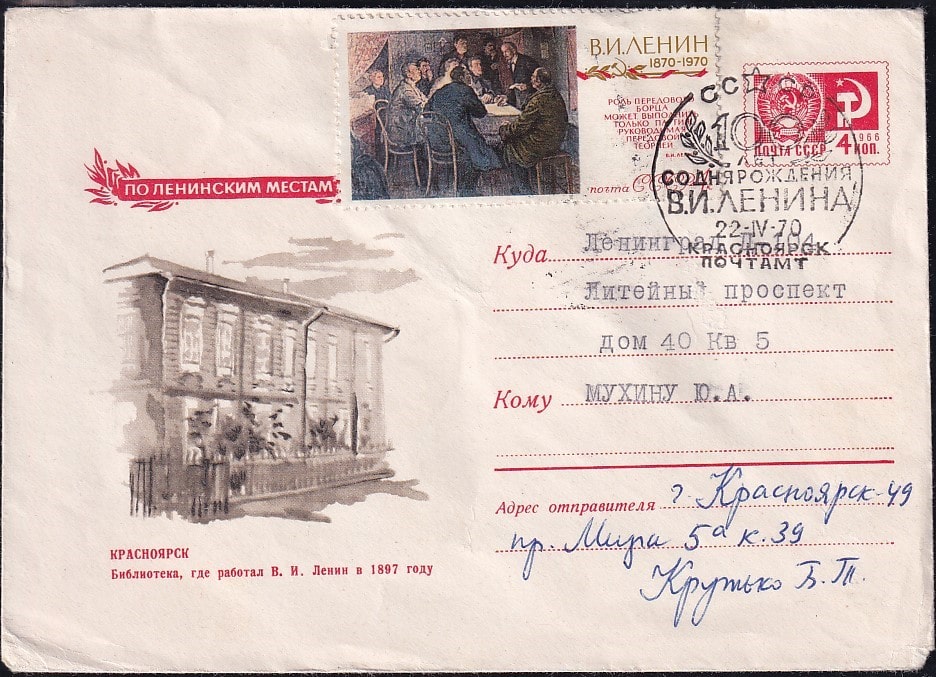 В.И.ЛЕНИН
1870-1970
РОЛЬ ПЕРЕДОВОГО
БОРЦА
МОЖЕТ ВЫПОЛНИТЬ
ТОЛЬКО ПАРТИЯ,
РУКОВОДИМАЯ
ПЕРЕДОВОЙ
ТЕОРИЕЙ
почта СССР
ПОЧТА СССР 4 КОП.
1966
СССР
100
ЛЕТ
СО ДНЯ РОЖДЕНИЯ
В.И.ЛЕНИНА
22-IV-70
КРАСНОЯРСК
ПОЧТАМТ
ПО ЛЕНИНСКИМ МЕСТАМ
Куда Ленинград Д-104
Литейный проспект
дом 40 Кв 5
Кому МУХИНУ Ю.А.
Адрес отправителя г. Красноярск-49
пр. Мира 5а к. 39
Крутько Б.Т.
КРАСНОЯРСК
Библиотека, где работал В. И. Ленин в 1897 году